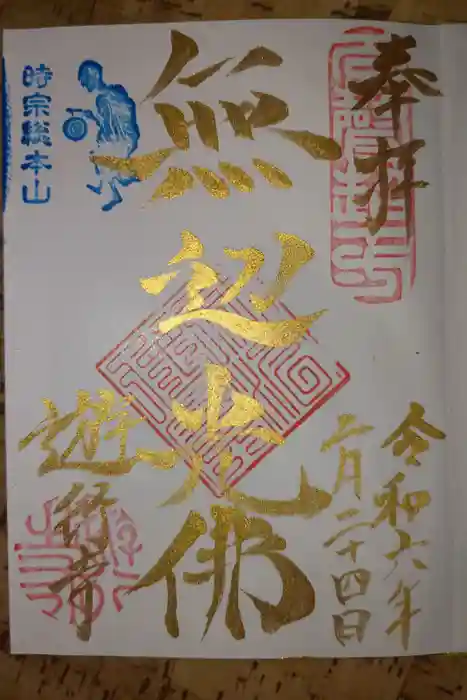 奉拝
令和六年
二月二十四日
無辺光佛
時宗総本山
遊行寺